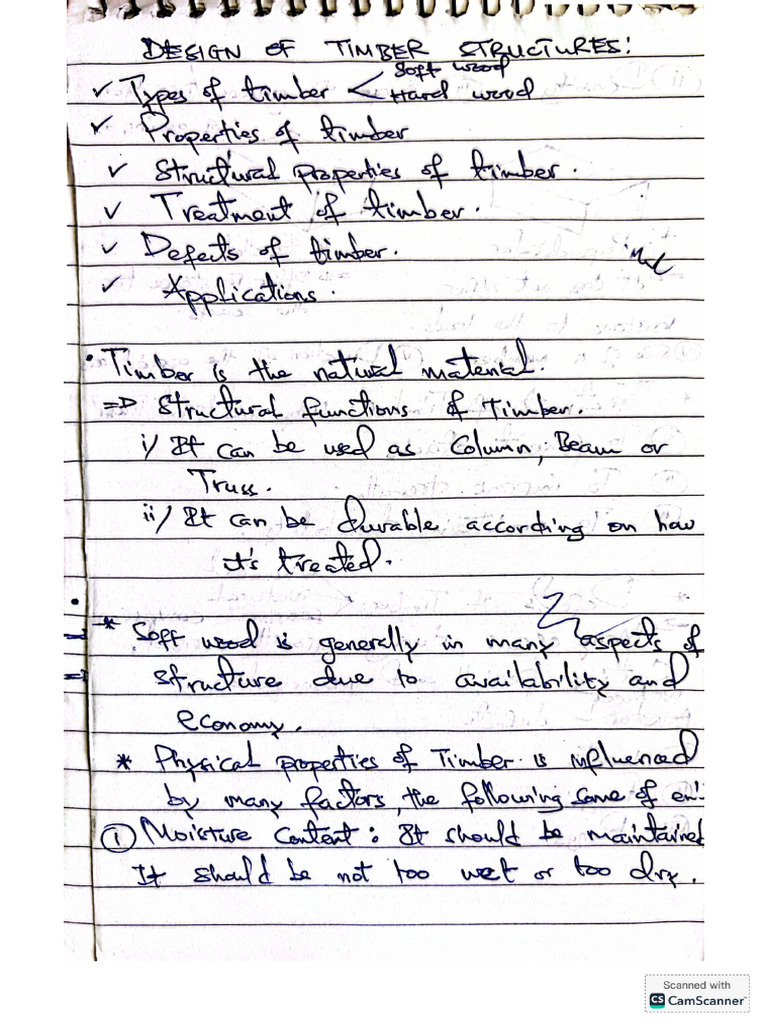 DESIGN OF TIMBER STRUCTURES:
✓ Types of timber < Soft wood
Hard wood
✓ Properties of timber
✓ Structural properties of timber.
✓ Treatment of timber.
✓ Defects of timber.
✓ Applications.
• Timber is the natural material.
=> Structural functions of Timber.
i/ It can be used as Column, Beam or
Truss.
ii/ It can be durable according on how
it's treated.
* Soft wood is generally in many aspects of
structure due to availability and
economy.
* Physical properties of Timber is influenced
by many factors, the following some of em:
① Moisture Content: It should be maintained
It should be not too wet or too dry.
Scanned with
CS CamScanner